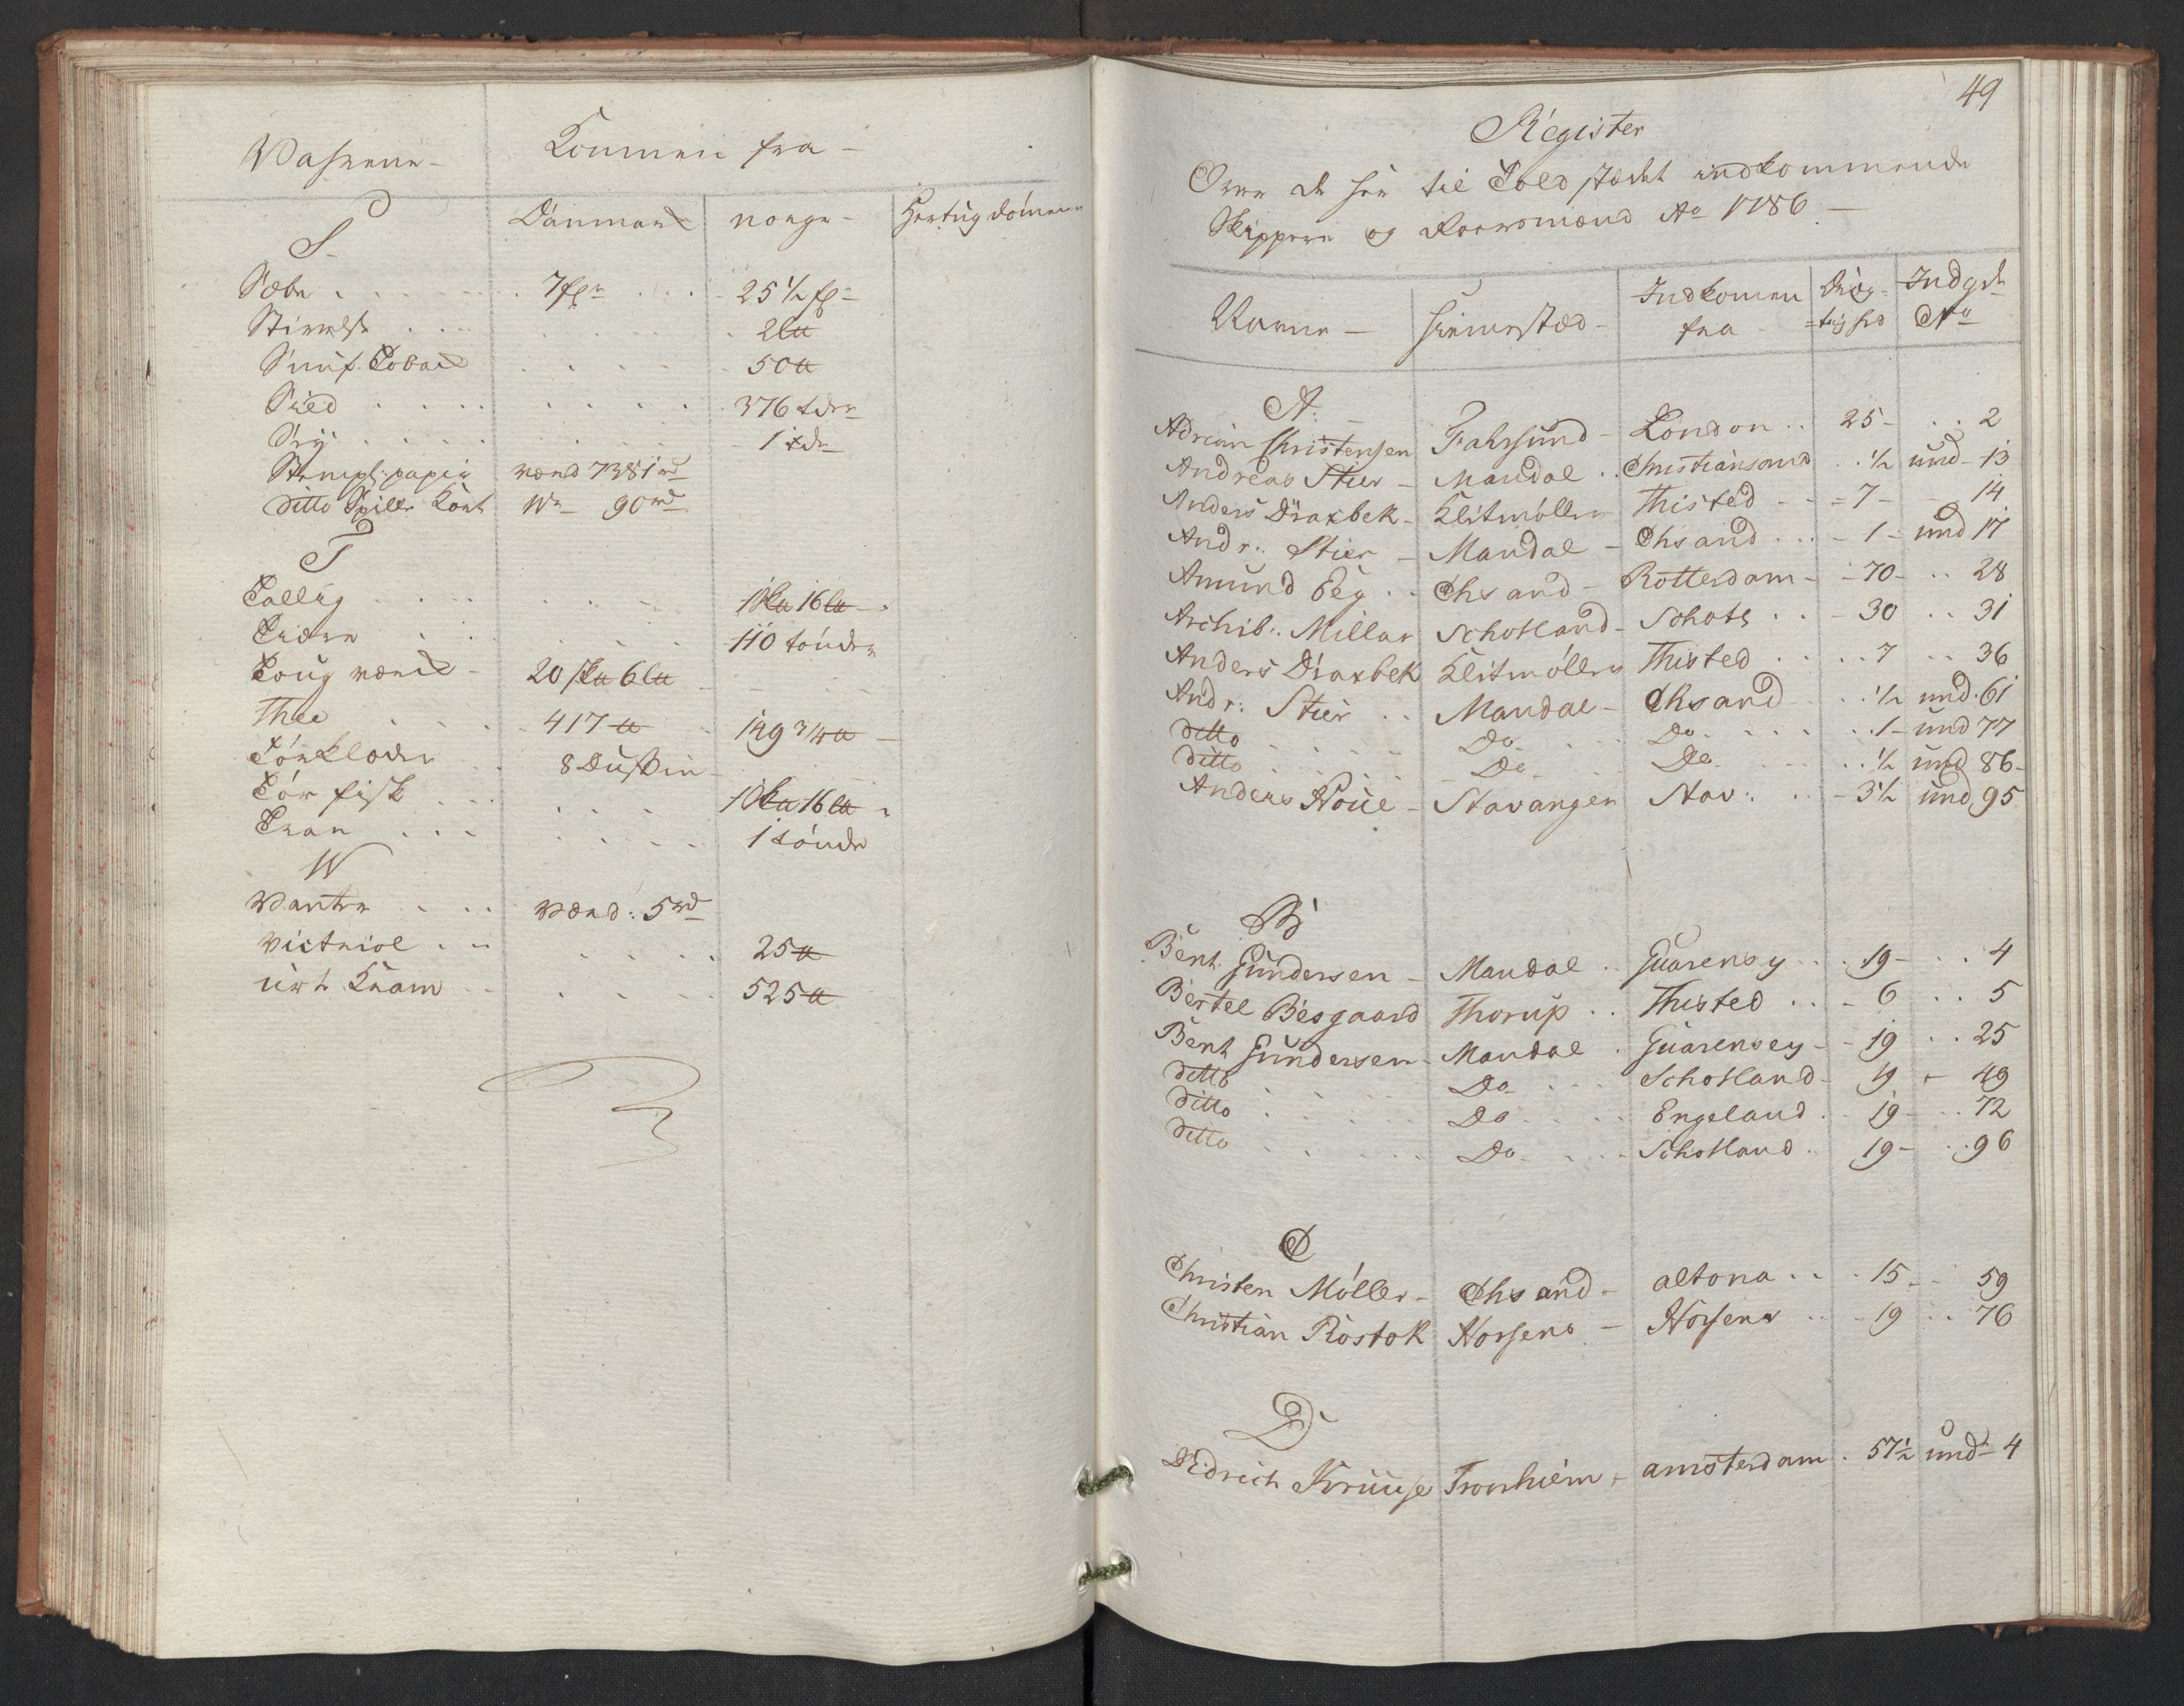 Vahrene - Kommen fra -
Danmark norge - Hertugdömene
S
Sæbe . . . 7 fl . . . 25 ½ fl
Stivelse . . . 2 lb
Snuf Toback . . . 50 lb
Sild . . . 376 tdr
Sey . . . 1 tde
Stempl: papir værd 7381 rd
ditto Spille Kort W 90 rd
T
Tallig . . . 16 lb
Tiære . . . 110 tönder
Toug værck - 20 6 lb
Thee . . . 417 lb 149 ¾ lb -
Törklæder . . 8 Dussin
Tör fisk . . . 16 lb
Tran . . . 1 tönde
W
Vanter . . . Værd: 5 rd
Victriol . . . 25 lb
urte Kram . . . 525 lb
49
Register
Over de her til Toldstædet indkommende
Skippere og Ao 1786 -
Navne - hiemstæd - Indkomen fra Dræg=tighed Indg No
A: -
Adrian Christensen Fahrsund - London . . 25 - . . 2
Andreas Stier - Mandal . . Christiansand . . ½ und - 13
Anders Draxbek - Klitmöller Thisted - - 7 - 14
Andr: Stier - Mandal - Chsand . . . 1 - und 17
Amund Eeg . . Chsand - Rotterdam - 70 - . . 28
Archib: Millar Schotland - Schotl . . - 30 . . 31
Anders Draxbek Klitmöller Thisted . . . . 7 . . 36
Andr: Stier . . Mandal - Chsand . . ½ und . 61
ditto . . . Do . . . Do . . . 1 - und 77
ditto . . . Do . . . Do . . . ½ und 86 -
Anders Houe - Stavanger Stav: . . - 3½ und 95
B
Bent Gundersen - Mandal . . Guarensy . . . 19 - . . 4
Bertel Besgaard Thorup . . Thisted . . - 6 . . 5
Bent Gundersen - Mandal . Guarensey - - 19 . . 25
ditto . . . Do . . . Schotland - 19 - 49
ditto . . . Do . . . Engeland . - 19 - . . 72
ditto . . . Do . . . Schotland . . 19 - . . 96
C
Christen Möller - Chsand - altona . . . 15 - . 59
Christian Rostok Horsens - Horsens . . - 19 . . 76
D
Didrich Kruuse Tronhiem - amsterdam . 57½ und - 4